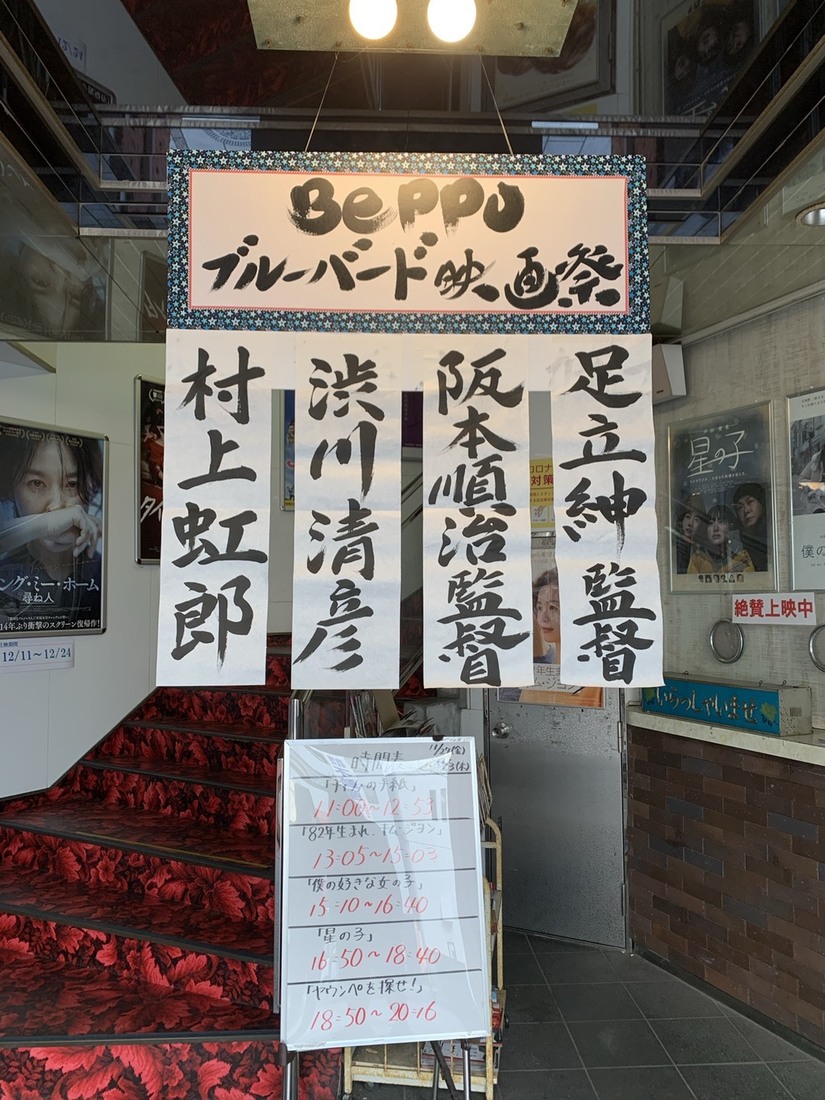 Beppu
ブルーバード映画祭
足立紳監督
阪本順治監督
渋川清彦
村上虹郎
時間表
11/27(金)
「82年生まれ、キム・ジヨン」
13:05〜15:03
「僕の好きな女の子」
15:10〜16:40
「星の子」
16:50〜18:40
「ヤウンペを探せ!」
18:50〜20:16
11:00〜12:53
ング・ミー・ホーム
尋ね人
14年ぶり衝撃のスクリーン復帰作!
12/11〜12/24
コロナ
対策
星の子
僕の
絶賛上映中
いらっしゃいませ